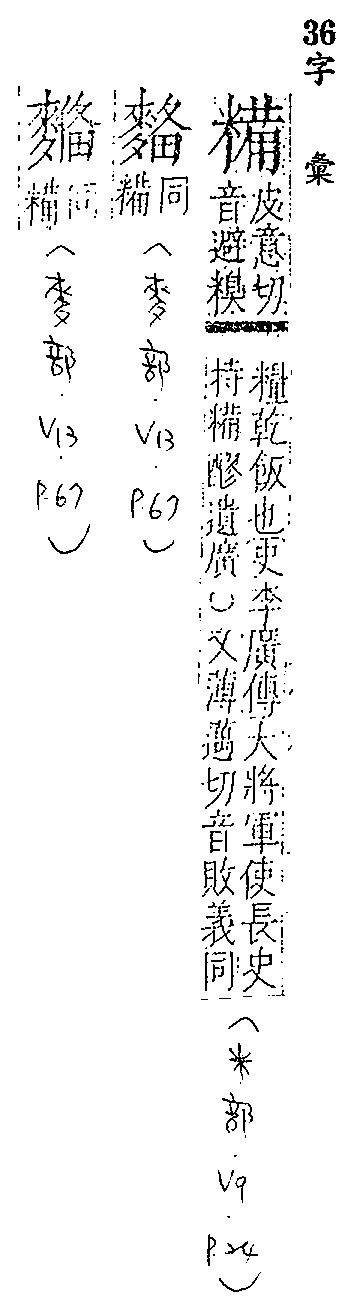 36字彙
糒
皮意切
音避糗
糧乾飯也史李廣傳大將軍使長史
持糒醪遺廣○又薄邁切音敗義同
(米部.V9.P.24)
同
糒
(麥部.V13.P.67)
同
糒
(麥部.V13.P.67)